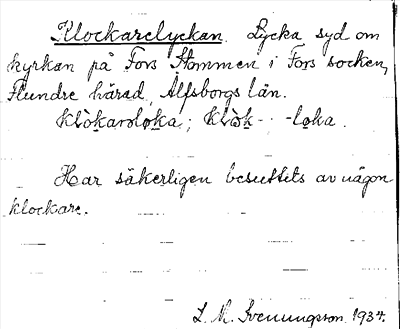 Klockarelyckan. Lycka syd om
kyrkan på Fors Stommen i Fors socken,
Flundre härad, Älfsborgs län.
Klòkaroloka; Klòk- - -loka.
Har säkerligen besuttits av någon
klockare.
S. M. Svenungsson 1934.